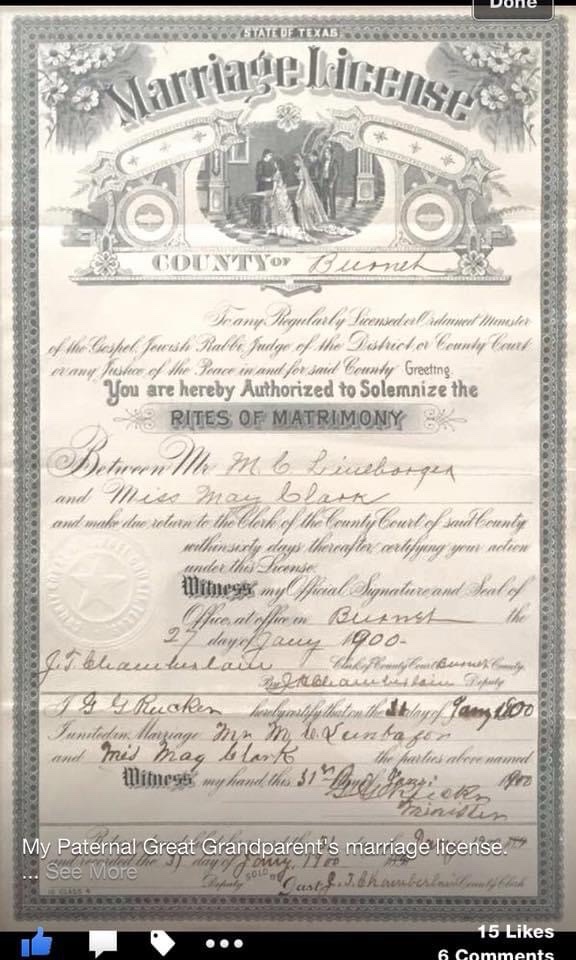 Done
STATE OF TEXAS
Marriage License
COUNTY OF Burnet
To any Regularly Licensed or Ordained Minister
of the Gospel, Jewish Rabbi, Judge of the District or County Court
or any Justice of the Peace in and for said County Greeting.
You are hereby Authorized to Solemnize the
RITES OF MATRIMONY
Between Mr M C Linebarger
and Miss May Clark
and make due return to the Clerk of the County Court of said County
within sixty days thereafter, certifying your action
under this License.
Witness my Official Signature and Seal of
Office, at office in Burnet the
27 day of Jany 1900-
J. T. Chamberlain Clerk of County Court Burnet County
By Chamberlain Deputy
I G G Rucker hereby certify that on the 31 day of Jany 1900
I united in Marriage Mr M C
and Miss May Clark the parties above named
Witness my hand, this 31st day of Jany 1900
Minister
My Paternal Great Grandparent's marriage license.
... See More
and recorded the 31 day of Jany, 1900
Deputy J. T. Chamberlain County Clerk
15 Likes
6 Comments